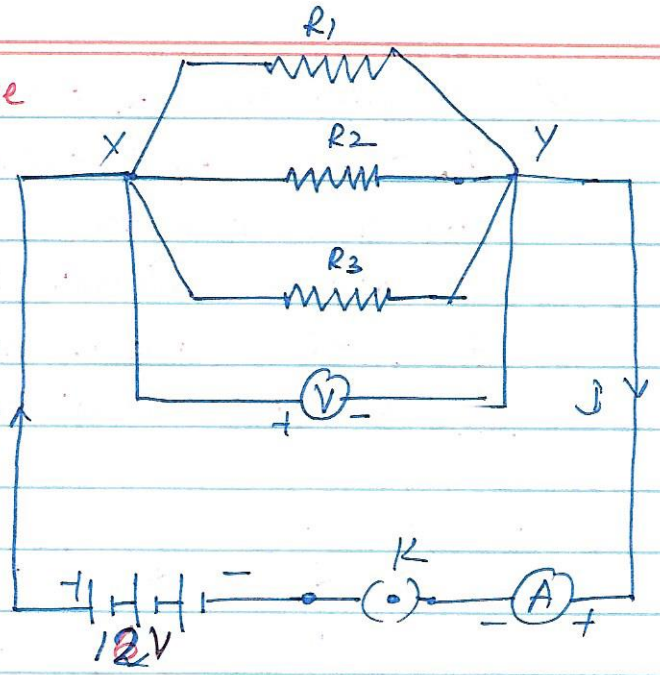 R1
e
X
R2
Y
R3
V
+ -
I
K
+ -
- A +
12V